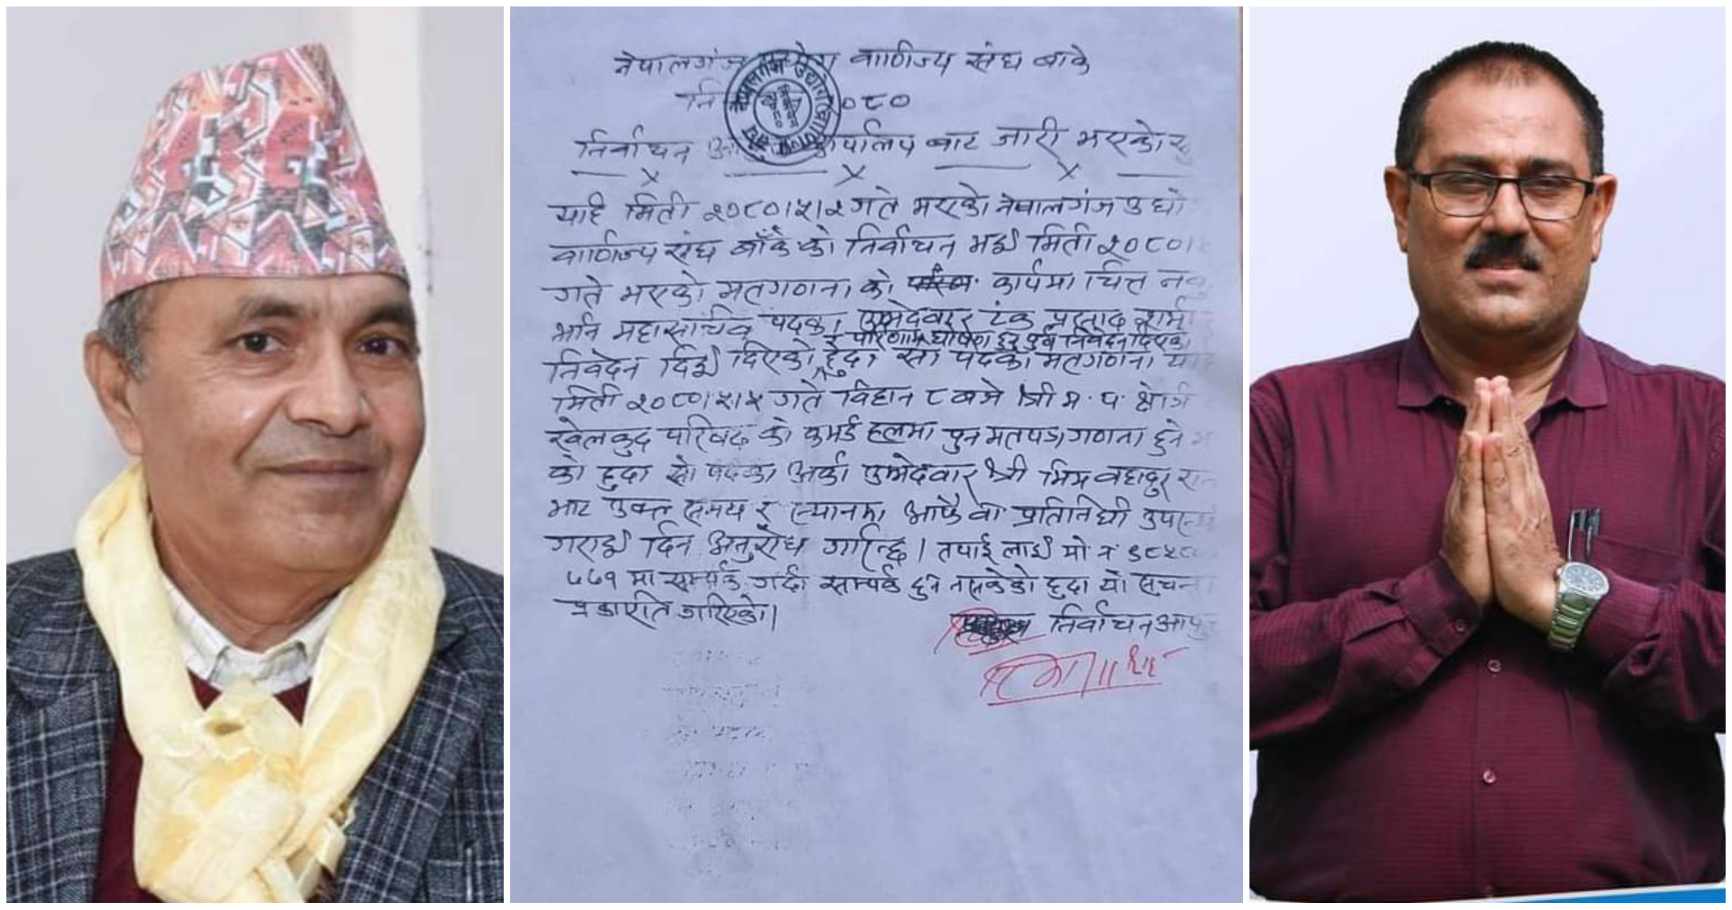 नेपालगंज उद्योग वाणिज्य संघ बाके
नि ०८०
निर्वाचन कार्यालय बाट जारी भएको
यहि मिती २०८०।५।२ गते भएको नेपालगंज उद्यो
वाणिज्य संघ बाँके को निर्वाचन भई मिती २०८०।
गते भएको मतगणना को कार्यमा चित्त नबु
भनि महासचिव पदका उम्मेदवार टंक प्रसाद शर्मा
र परिणाम घोषणा हुनु पूर्व निवेदन दिएको
निवेदन दिई दिएको हुदा सो पदको मतगणना
मिती २०८०।५।५ गते विहान ८ बजे म.प.
खेलकुद परिषद को कभर्ड हलमा पुन मतपत्र गणना हुने
को हुदा सो पदका अर्का उम्मेदवार श्री भिम बहादुर
बाट उक्त समय र स्थानमा आफै वा प्रतिनिधी
गराई दिन अनुरोध गरिन्छ। तपाई लाई मो नं ९८५८०
७७१ मा सम्पर्क गर्दा सम्पर्क हुन नसकेको हुदा यो सूचना
प्रकाशित गरिएको।
निर्वाचन